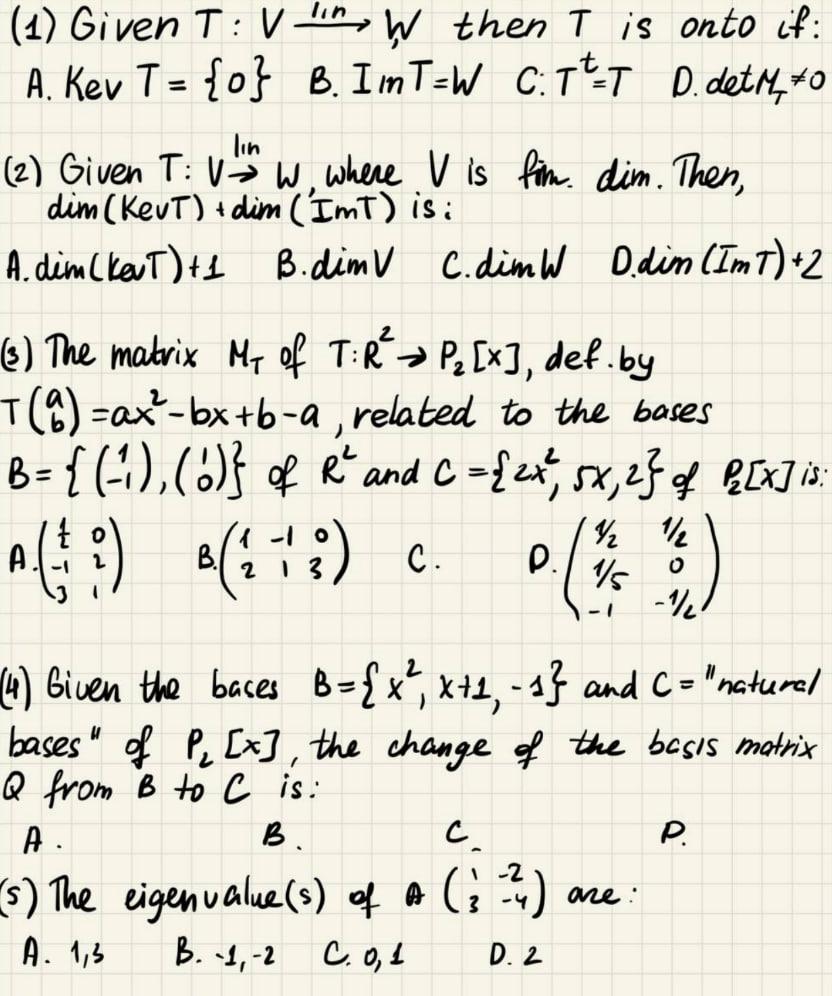 (1) Given T: V lin→ W then T is onto if:
A. Ker T = {0} B. Im T = W C: T^t = T D. det M_T ≠ 0
(2) Given T: V lin→ W, where V is fin. dim. Then,
dim(KerT) + dim(ImT) is:
A. dim(kerT)+1 B. dim V C. dim W D. dim (Im T)+2
(3) The matrix M_T of T: R² → P₂[x], def. by
T(a b) = ax² - bx + b - a, related to the bases
B = {(1 -1), (1 0)} of R² and C = {2x², 5x, 2} of P₂[x] is:
A. (1/2 0 / -1 2 / 3 1) B. (1 -1 0 / 2 1 3) C. D. (1/2 1/2 / 1/5 0 / -1 -1/2)
(4) Given the baces B = {x², x+1, -1} and C = "natural
bases" of P₂ [x], the change of the basis matrix
Q from B to C is:
A. B. C. D.
(5) The eigenvalue(s) of A (1 -2 / 3 -4) are:
A. 1,3 B. -1,-2 C. 0,1 D. 2